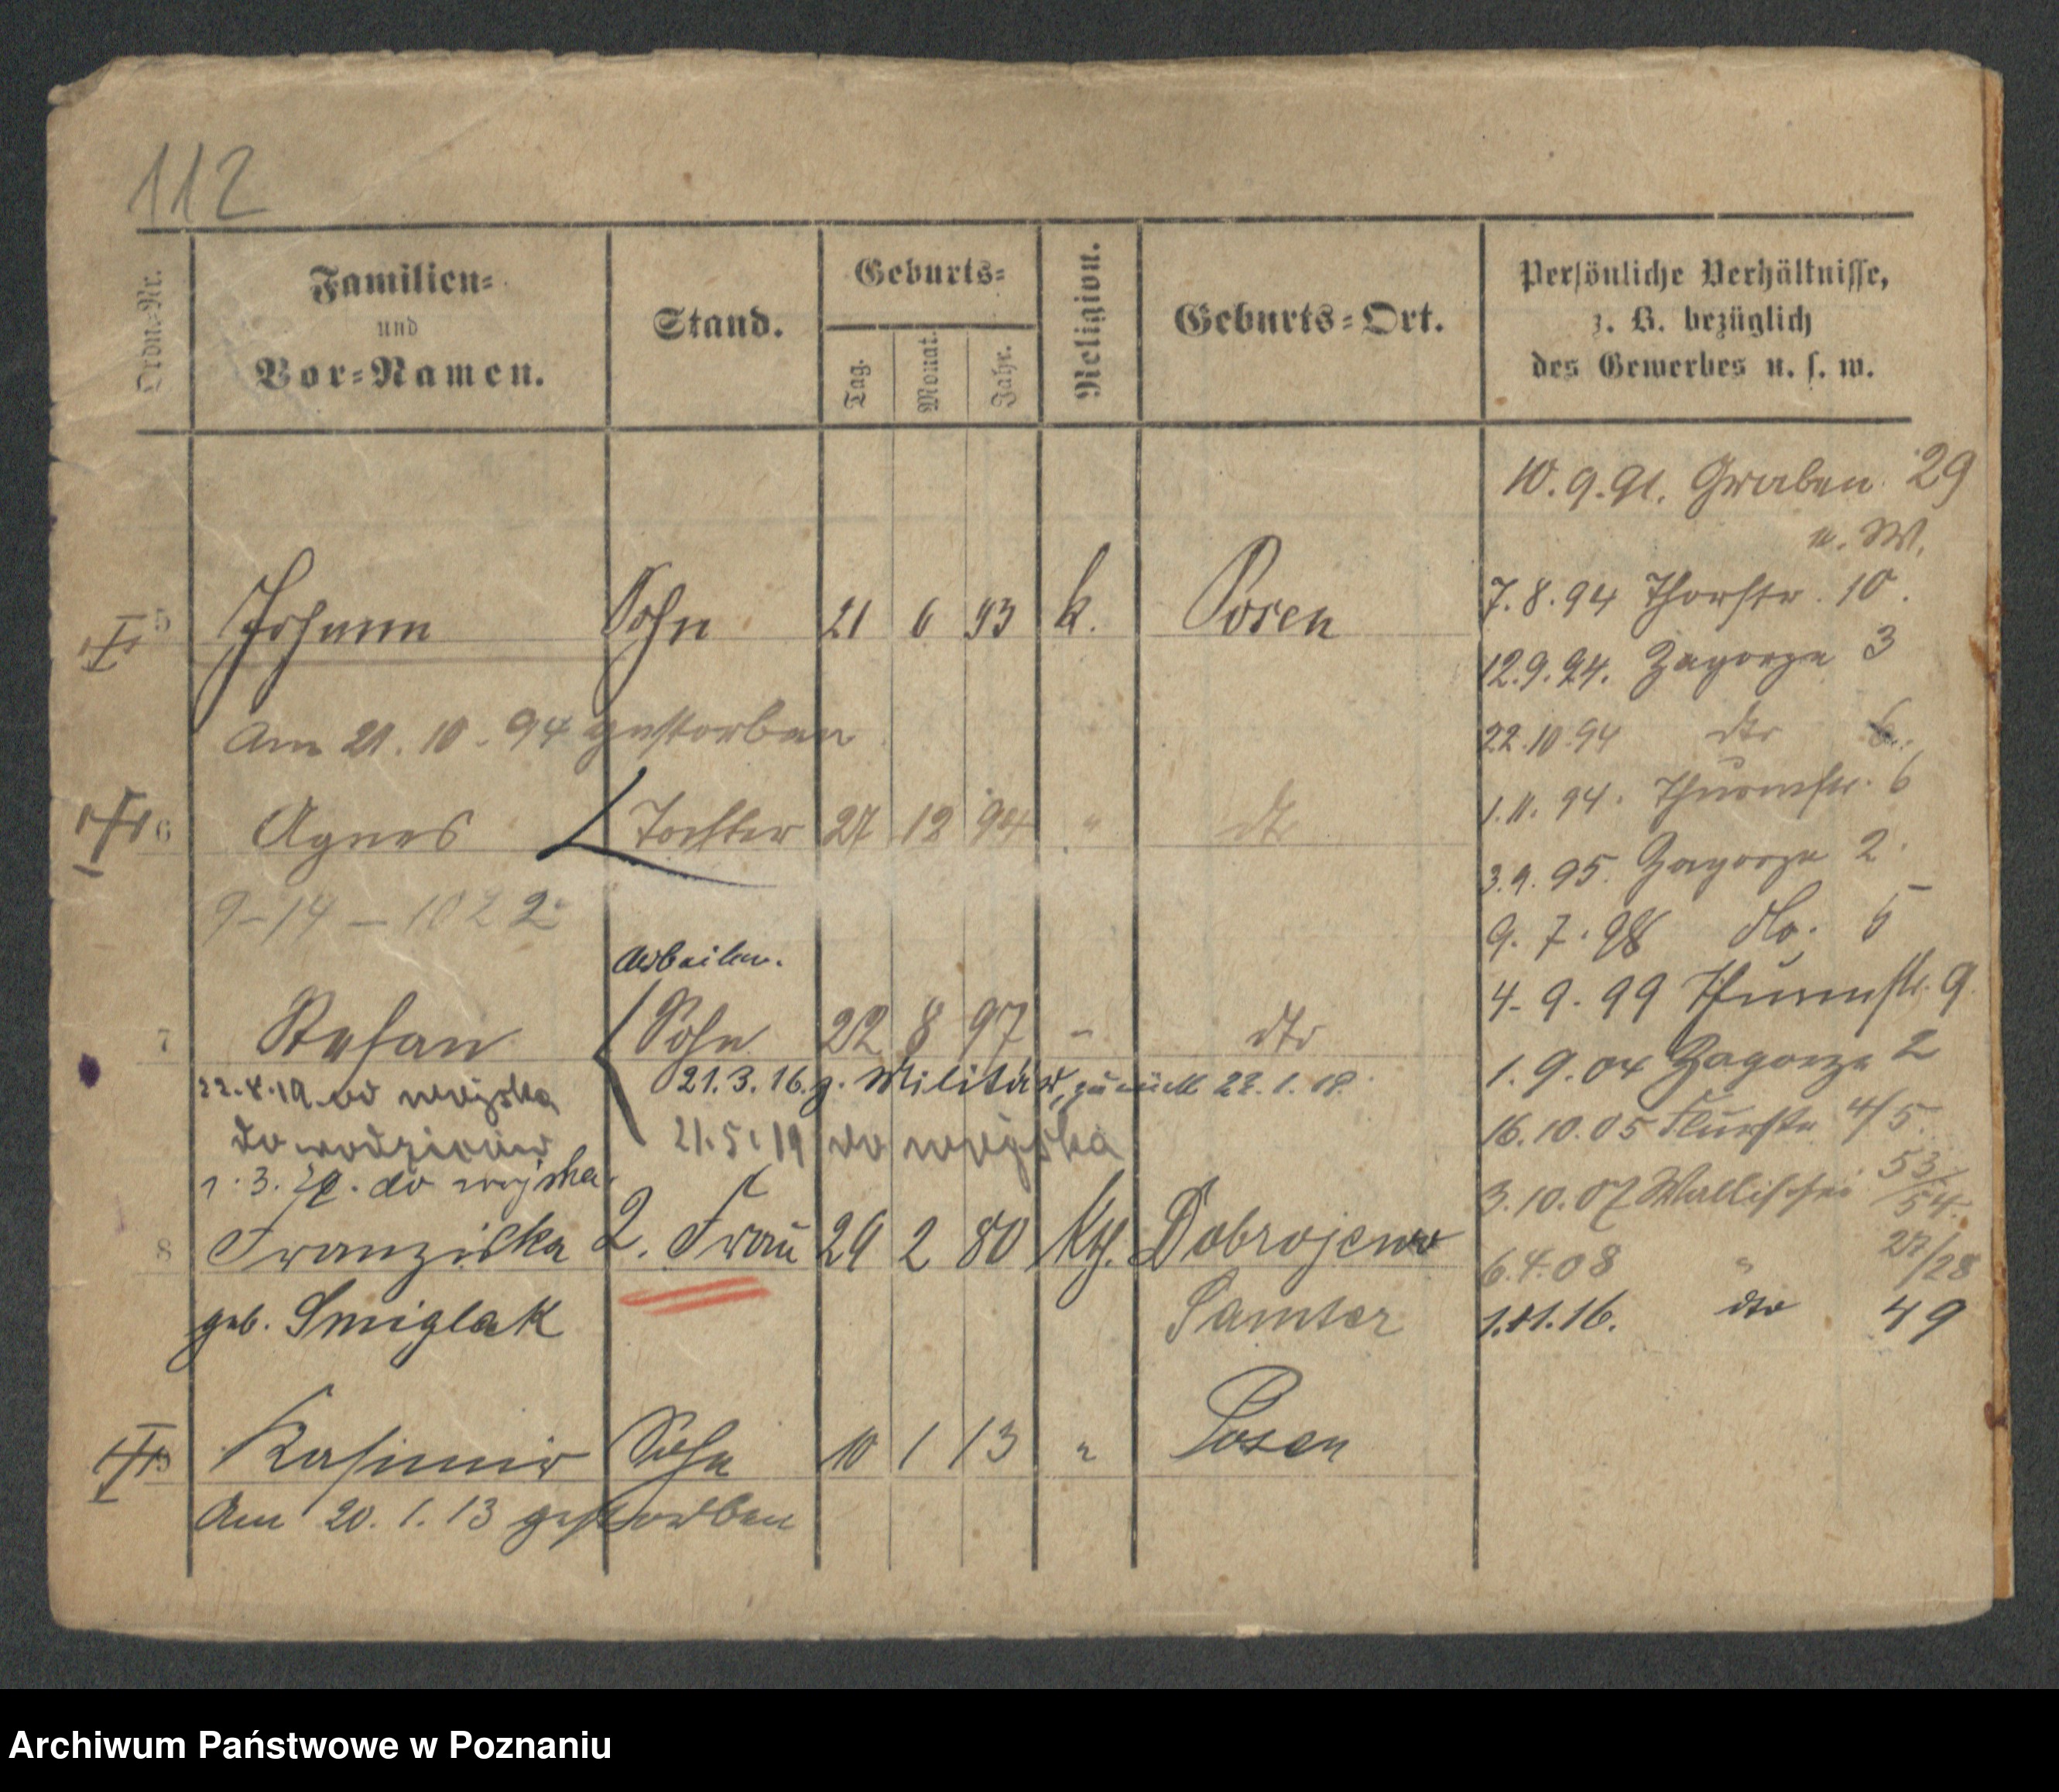 112
Ordn.-Nr.
Familien-
und
Vor-Namen.
Stand.
Geburts-
Tag.
Monat.
Jahr.
Religion.
Geburts-Ort.
Persönliche Verhältnisse,
z. B. bezüglich
des Gewerbes u. s. w.
10.9.91. Graben 29
u. W.
5 Johann Sohn 21 6 93 k. Posen
7.8.94 Thorstr. 10.
12.9.94. Zagorze 3
Am 21.10.94 gestorben
22.10.94 dto 6
1.11.94. Thurmstr. 6
6 Agnes Tochter 27 12 94 " dto
3.9.95. Zagorze 2
9-14-1022
9.7.98 do. 5
Arbeiter.
4.9.99 Thurmstr. 9
7 Stefan Sohn 22 8 97 - dto
1.9.04 Zagorze 2
21.3.16. z. Militär, zurück 22.1.19.
od wojska
do rodziców
21.5.19 do wojska
16.10.05 Flurstr 4/5.
1.3.20. do wojska
3.10.07 Wallischei 53/54.
8 Franziska 2. Frau 29 2 80 kth. Dobrojewo
6.4.08 " 27/28
geb. Smiglak Samter
1.11.16. dto 49
9 Kasimir Sohn 10 1 13 " Posen
Am 20.1.13 gestorben
Archiwum Państwowe w Poznaniu